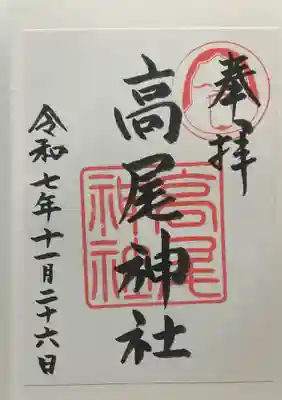 奉拝
高尾神社
高尾神社
令和七年十一月二十六日